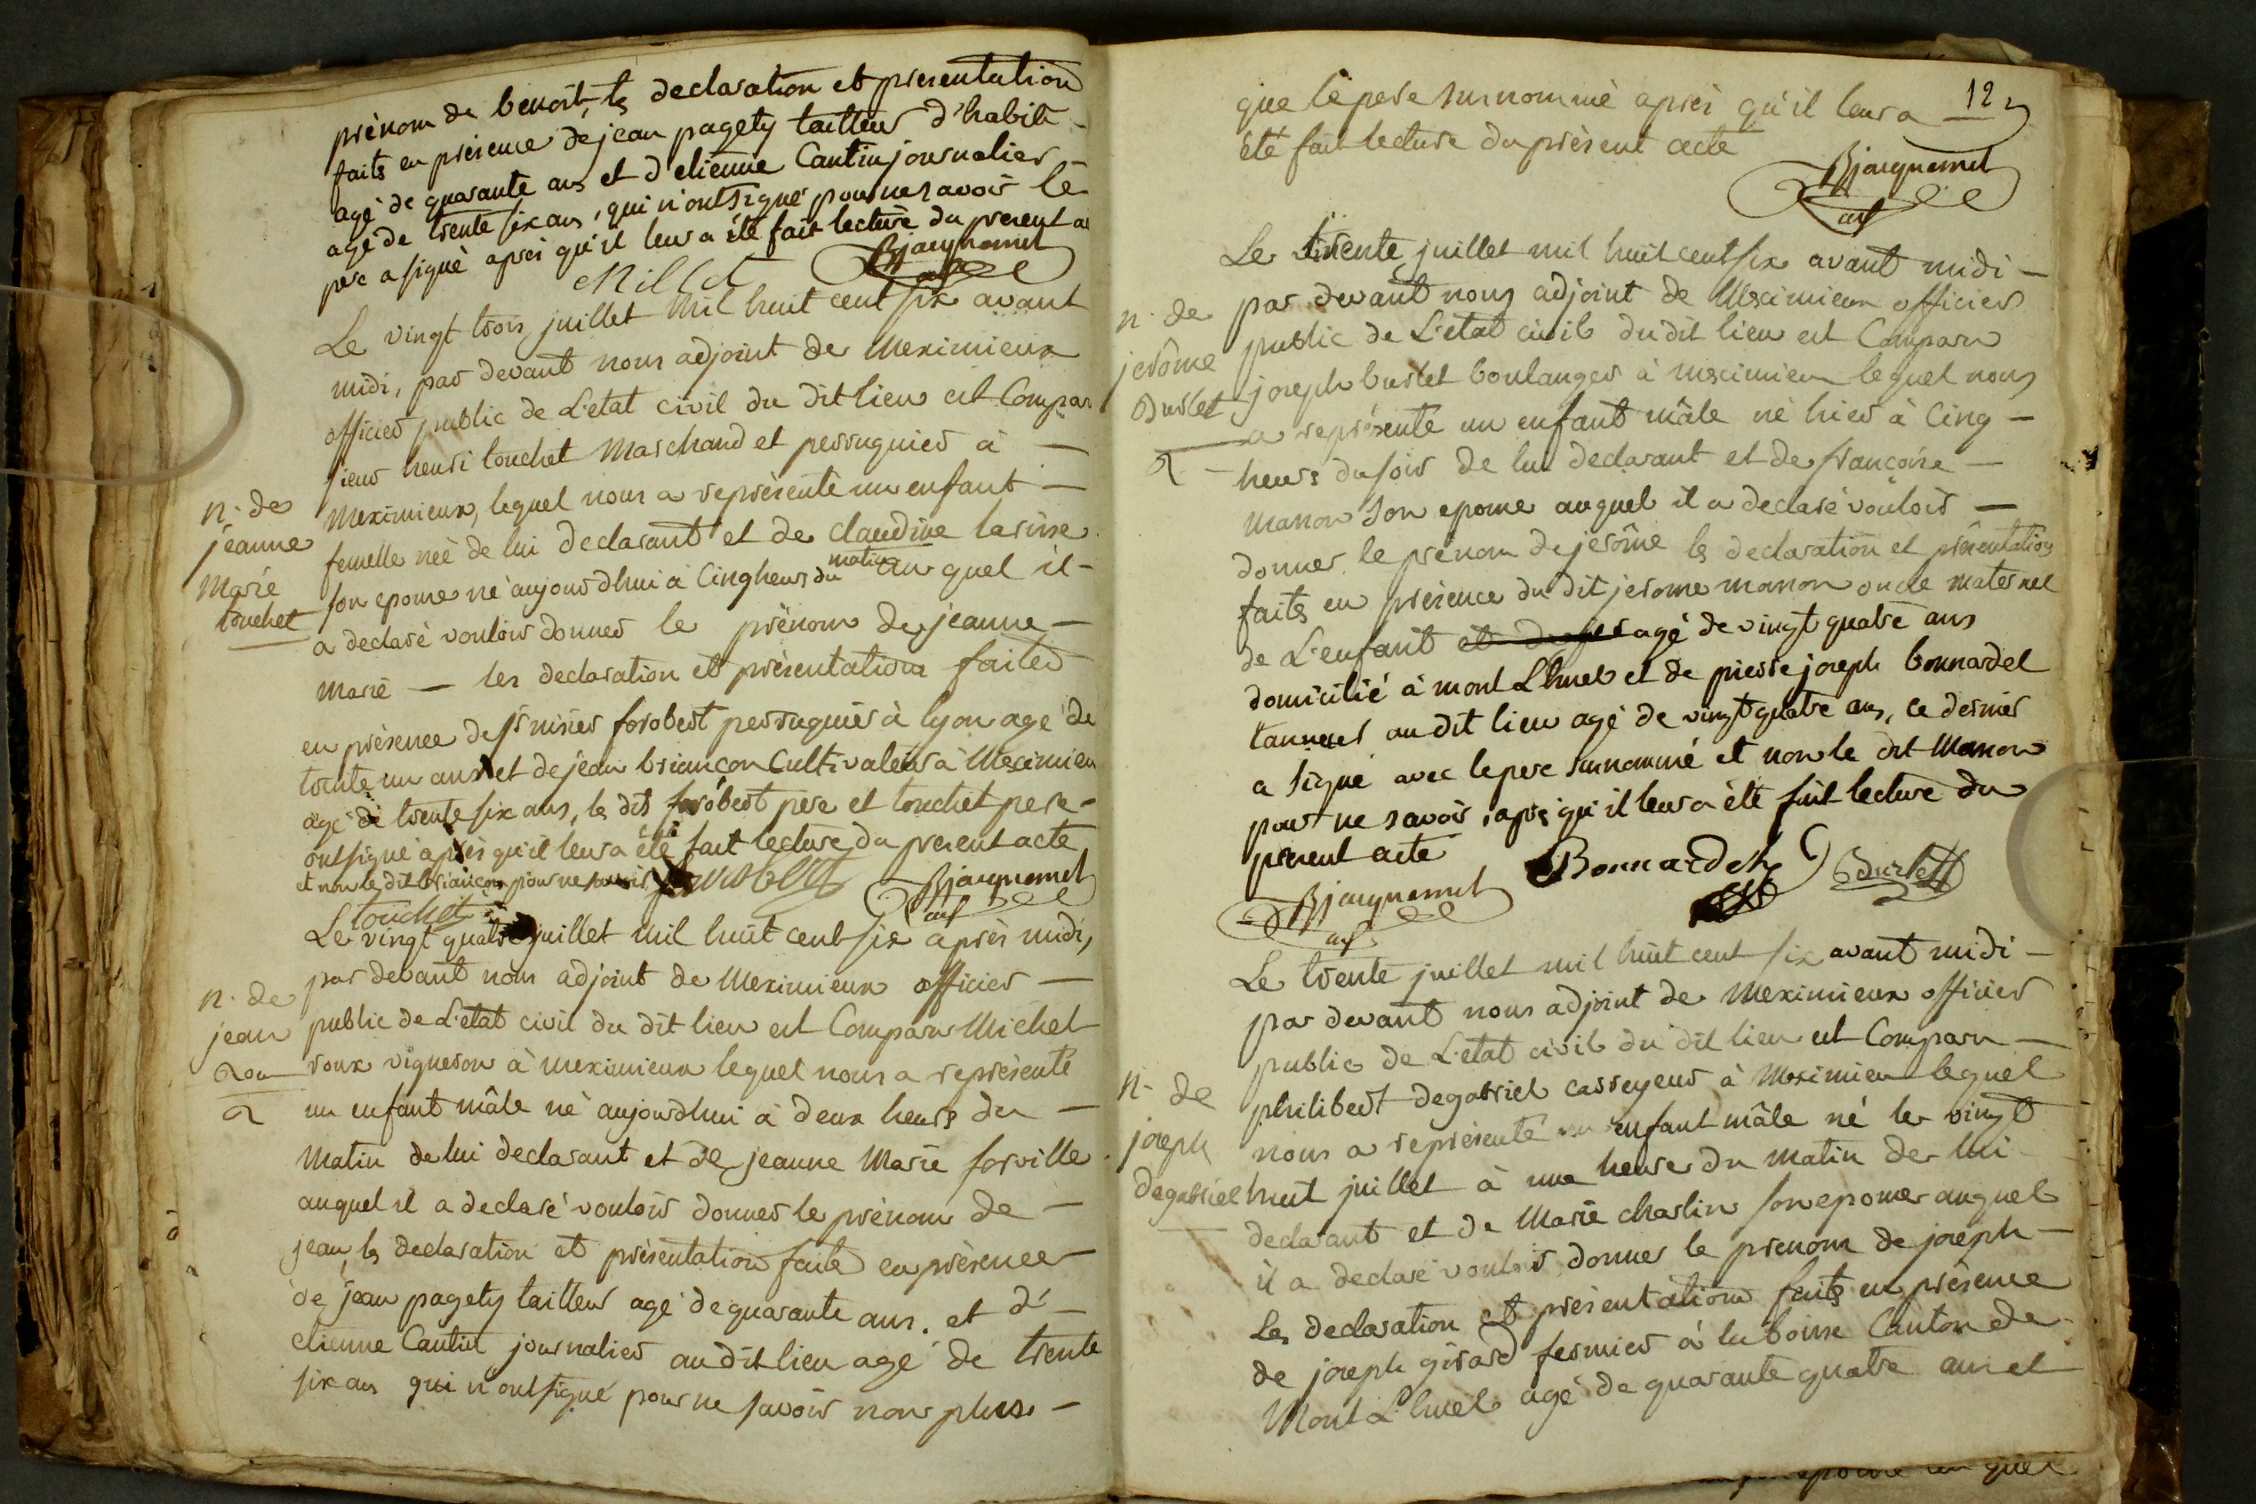 prénom de benoit, les declaration et presentation
faits en présence de jean pagety tailleur d'habit
agé de quarante ans et d'etienne Cantin journalier
agé de trente six ans, qui n'ont signé pour ne savoir le
pere a signé aprés qu'il leur a été fait lecture du present ac
Millet Bjacquemet
adj
Le vingt trois juillet mil huit cent six avant
midi, par devant nous adjoint de Meximieux
officier public de L'etat civil du dit lieu est Compar
sieur henri touchet Marchand et perruquier à
n. de
jeanne
Marie
touchet
Meximieux, lequel nous a représenté un enfant
femelle née de lui declarant et de claudine larine
son epouse né aujourdhui à Cinq heurs du matin auquel il
a declaré vouloir donner le prénom de jeanne
Marie — les declaration et présentation faites
en présence de forobert perruquier à lyon agé de
trente un ans et de jean briancon Cultivateur à Meximieu
agé de trente six ans, les dits forobert pere et touchet pere
ont signé aprés qu'il leur a été fait lecture du present acte
et non le dit briancon pour ne savoir forobert Bjacquemet
touchet adj
Le vingt quatre juillet mil huit cent six aprés midi,
par devant nous adjoint de Meximieux officier
n. de
jean
Rou
public de L'etat civil du dit lieu est Comparu Michel
roux vigneron à meximieux lequel nous a représenté
un enfant mâle né aujourdhui à deux heurs du
Matin de lui declarant et de jeanne Marie forville
auquel il a declaré vouloir donner le prénom de
jean, les declaration et présentation faite en présence
de jean pagety tailleur agé de quarante ans. et d'
etienne Cantin journalier au dit lieu agé de trente
six ans qui n'ont signé pour ne savoir non plus
12
que le pere surnommé aprés qu'il leur a
été fait lecture du présent acte
Bjacquemet
adj
Le trente juillet mil huit cent six avant midi
n. de
jerôme
Burlet
par devant nous adjoint de Meximieux officier
public de L'etat civil du dit lieu est Comparu
joseph burlet boulanger à meximieu lequel nous
a représenté un enfant mâle né hier à Cinq
heurs du soir de lui declarant et de francoise
manon son epouse auquel il a declaré vouloir
donner le prénom de jerôme les declaration et présentation
faits en présence du dit jerome manon oncle maternel
de L'enfant agé de vingt quatre ans
domicilié à mont Lhuel et de pierre joseph bonnardel
tanneur au dit lieu agé de vingt quatre ans, ce dernier
a signé avec le pere surnommé et non le dit Manon
pour ne savoir, aprés qu'il leur a été fait lecture du
present acte
Bonnardel Burlet
Bjacquemet
adj
Le trente juillet mil huit cent six avant midi
par devant nous adjoint de Meximieux officier
public de L'etat civil du dit lieu est Comparu
n. de
joseph
degabriel
philibert degabriel casseyeur à Meximieu lequel
nous a représenté un enfant mâle né le vingt
huit juillet à une heure du matin de lui
declarant et de Marie charlin son epouse auquel
il a declaré vouloir donner le prenom de joseph
Les declaration et présentation faits en présence
de joseph girard fermier à la boisse Canton de
Mont L'huel agé de quarante quatre ans et